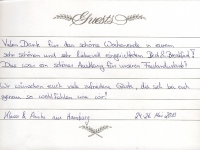 Guests
Vielen Dank für das schöne Wochenende in eurem
sehr schönen und sehr liebevoll eingerichteten Bed & Breakfast!
Das war ein schöner Ausklang für unseren Frieslandurlaub!
Wir wünschen euch viele zufriedene Gäste, die sich bei euch
genauso wohlfühlen wie wir!
Klaus & Anita aus Hamburg 24.-26. Mai 2010